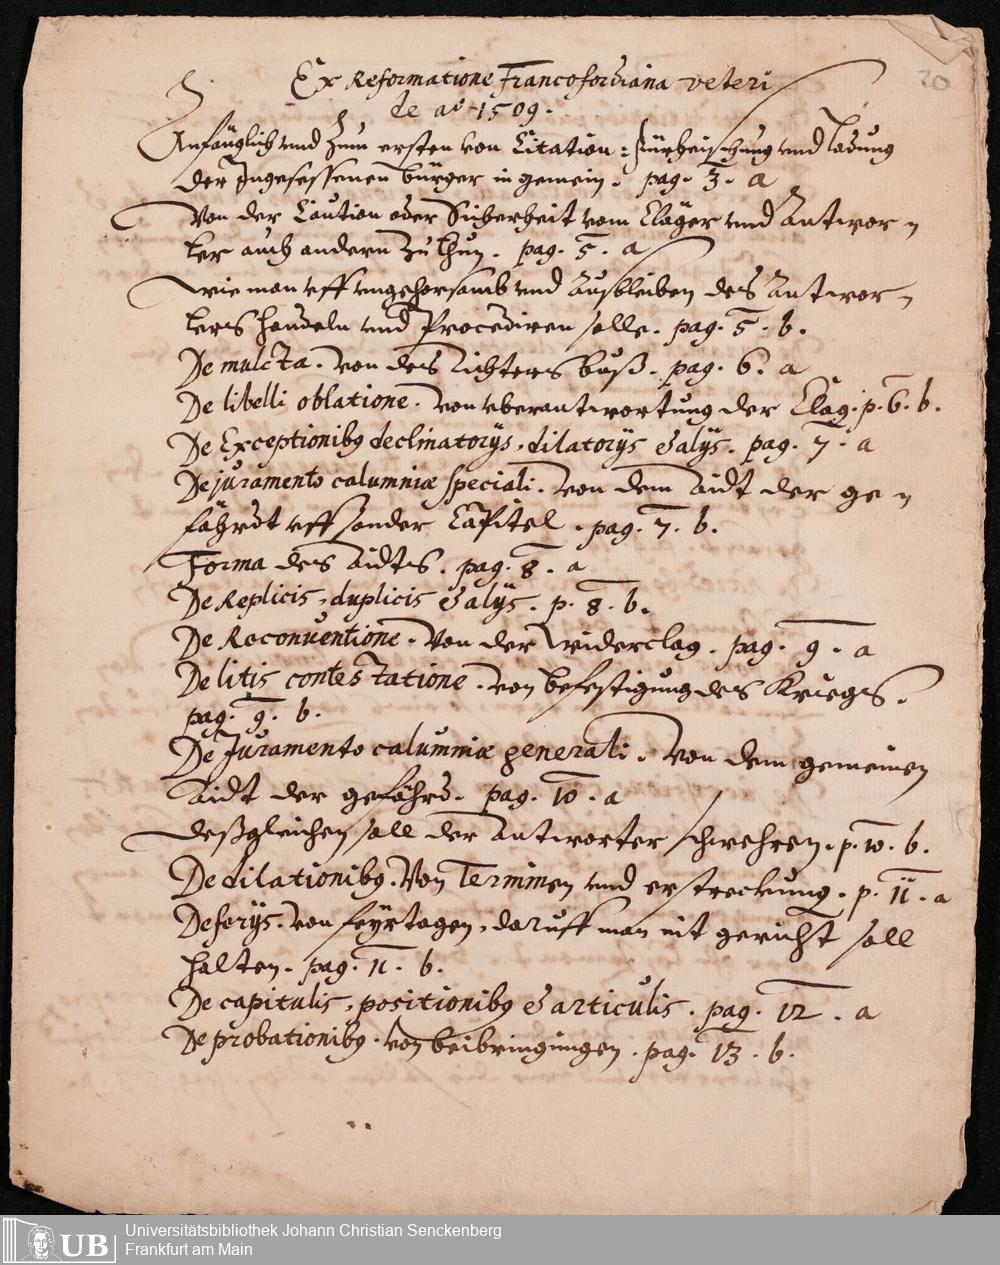 70
Ex Reformatione Francofordiana veteri
de aº 1509.
Anfänglich und Zum ersten von Citation : fürheischung und Ladung
der Ingesessenen bürger in gemein. pag. 3. a
Von der Caution oder Sicherheit vom Cläger und Antwor-
ter auch andern zu thun. pag. 5. a
Wie man uff ungehorsamb und Ausbleiben des Antwor-
ters handeln und Procediren solle. pag. 5. b.
De mulcta. Von des Richters buß. pag. 6. a
De libelli oblatione. Von uberantwortung der Clag. p. 6. b.
De Exceptionibq declinatorÿs, dilatorÿs & alÿs. pag. 7. a
De juramento calumniæ speciali. Von dem Aidt der ge-
fährdt uff sonder Capitel. pag. 7. b.
Forma des Aidts. pag. 8. a
De Replicis, duplicis & alÿs. p. 8. b.
De Reconventione. Von der widerclag. pag. 9. a
De litis contestatione. von befestigung des Kriegs.
pag. 9. b.
De Juramento calumniæ generali. Von dem gemeinen
Aidt der gefährd. pag. 10. a
deßgleichen soll der Antworter schwehren. p. 10. b.
De dilationibq. Von Terminen und erstreckung. p. 11. a
De ferÿs. von feyrtagen, daruff man nit gericht soll
halten. pag. 11. b.
De capitulis, positionibq & articulis. pag. 12. a
De probationibq. von beibringungen. pag. 13. b.
UB
Universitätsbibliothek Johann Christian Senckenberg
Frankfurt am Main